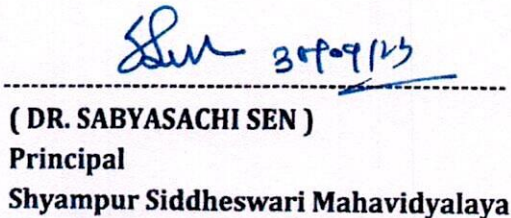 30/09/23
( DR. SABYASACHI SEN )
Principal
Shyampur Siddheswari Mahavidyalaya